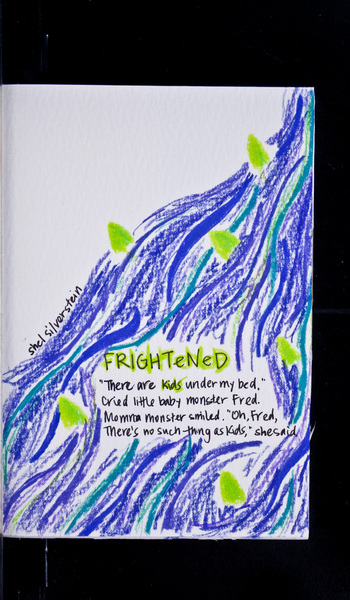 shel silverstein
FRIGHTeNeD
"There are kids under my bed,"
Cried little baby monster Fred.
Momma monster smiled. "Oh, Fred,
There's no such thing as kids," she said.